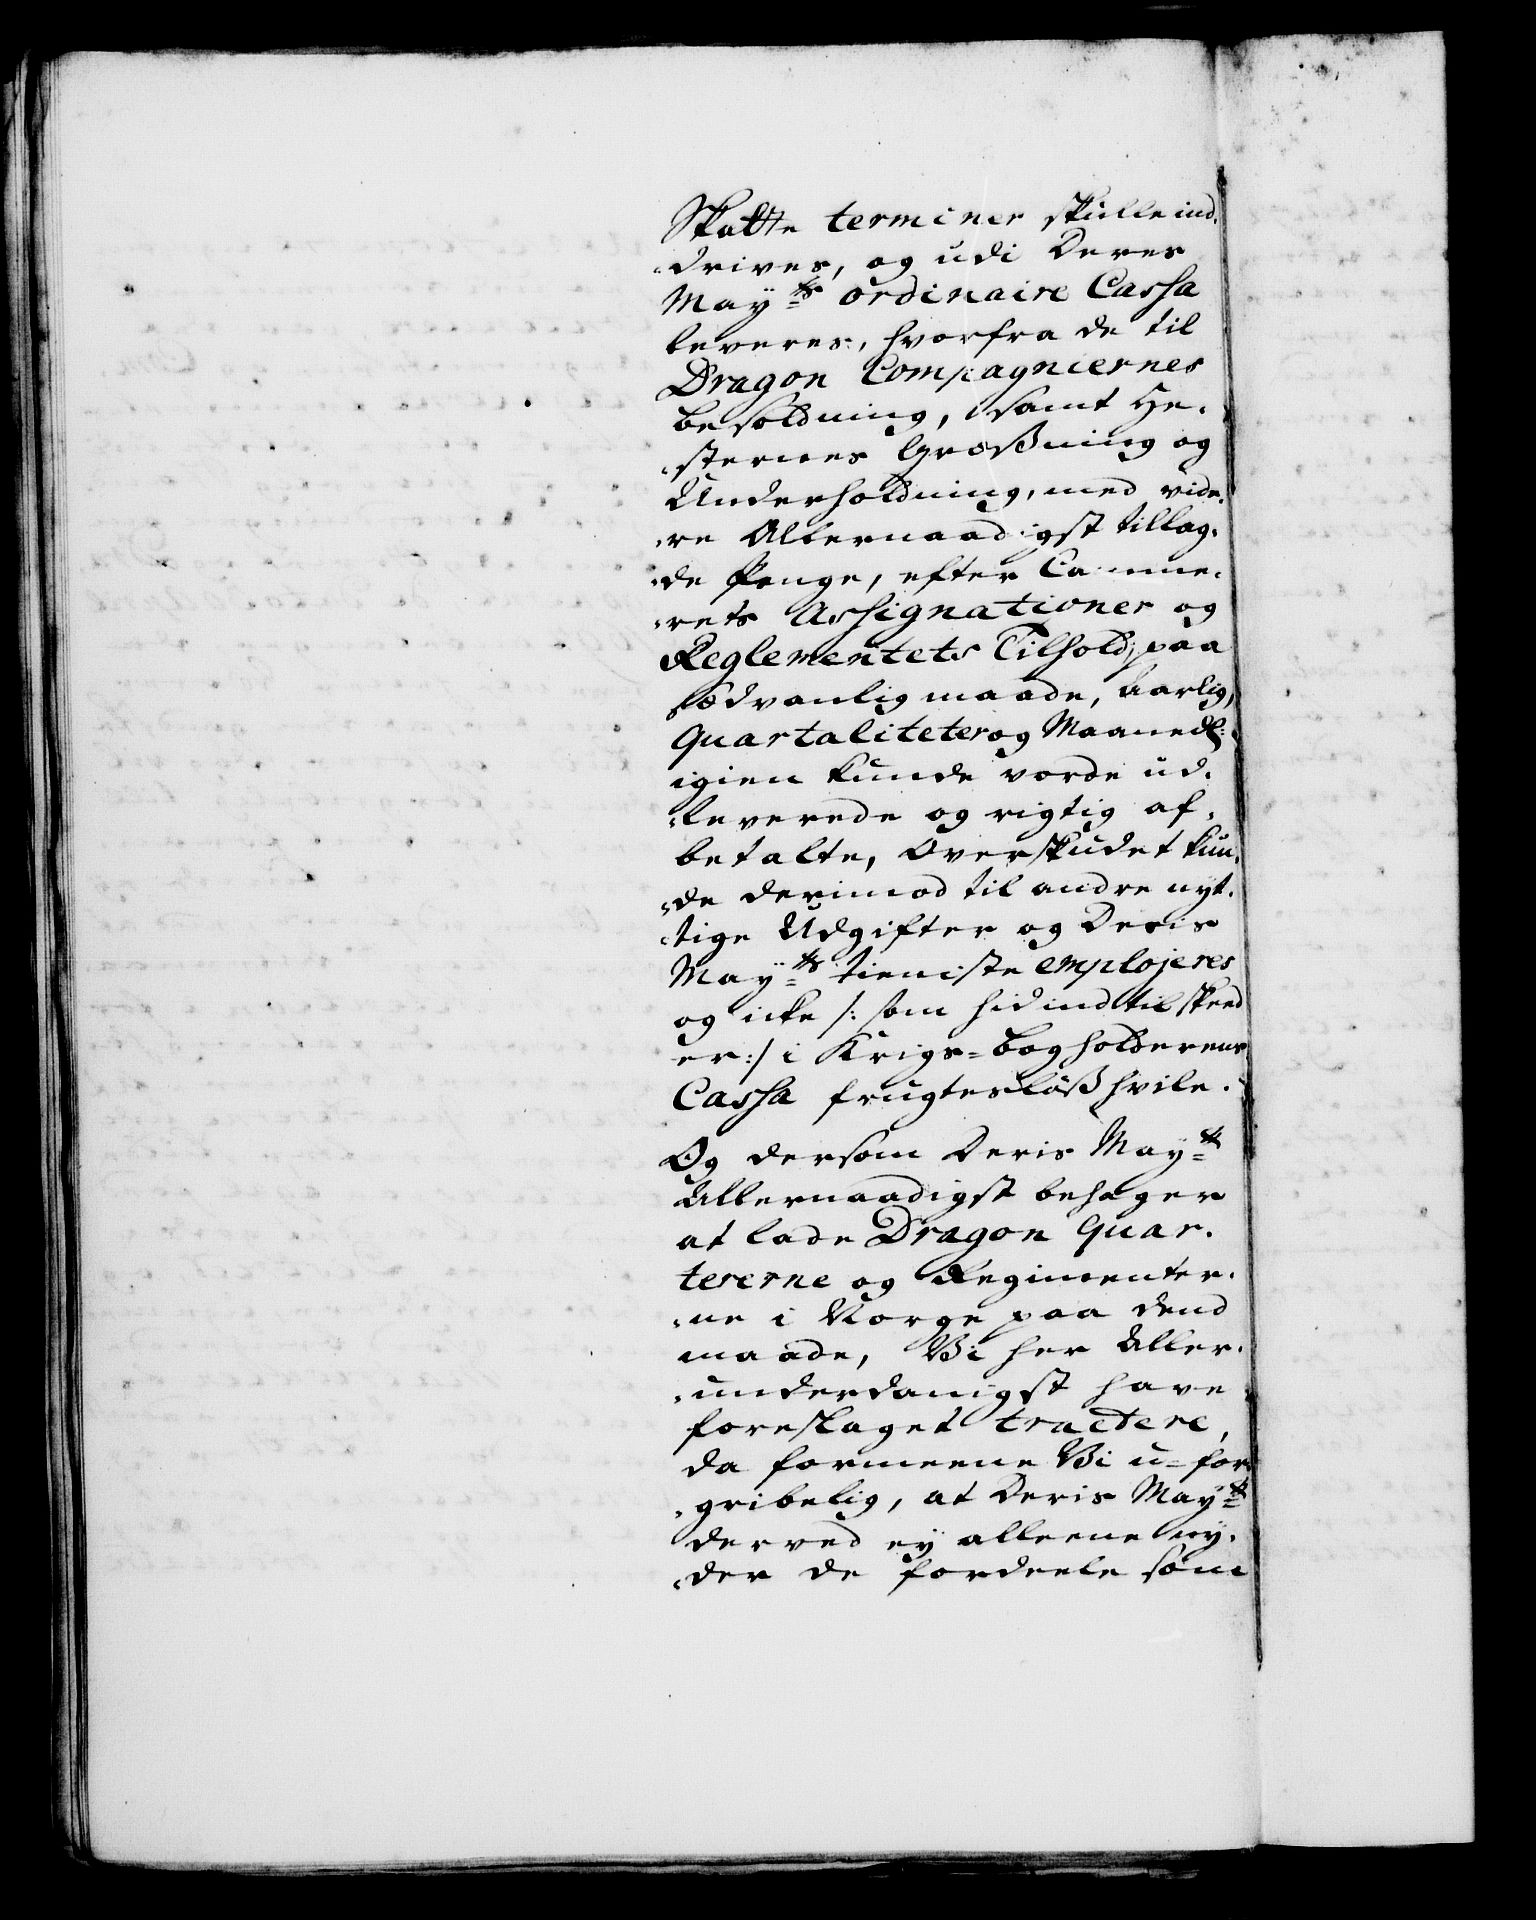 Skatte terminer skulle ind-
-drives, og udi Deres
Maÿ:ts ordinaire Cassa
leveres, hvorfra de til
Dragon Compagniernes
besoldning, samt He-
-sternes Græsning og
Underholdning, med vide-
-re Allernaadigst tillag-
-de Penge, efter Camme-
-rets Assignationer og
Reglementets Tilhold, paa
sædvanlig maade, Aarlig,
Quartaliteter og Maanedl:
igien kunde vorde ud-
-leverede og rigtig af-
betalte, Overskudet kun-
-de derimod til andre nyt-
-tige Udgifter og Deris
Maÿ:ts tieniste emplojeres
og icke /: som hid indtil skeed
er :/ i Krigs=bogholderens
Cassa frugtesløß hvile.
Og dersom Deris Maÿ:tt
Allernaadigst behager
at lade Dragon Quar-
tererne og Regimenter-
-ne i Norge paa dend
maade, Vi her Aller-
-underdanigst have
foreslaget tractere,
da formeene Vi u=for-
-gribelig, at Deris Maÿ:tt
derved eÿ alleene ny-
-der de fordeele som